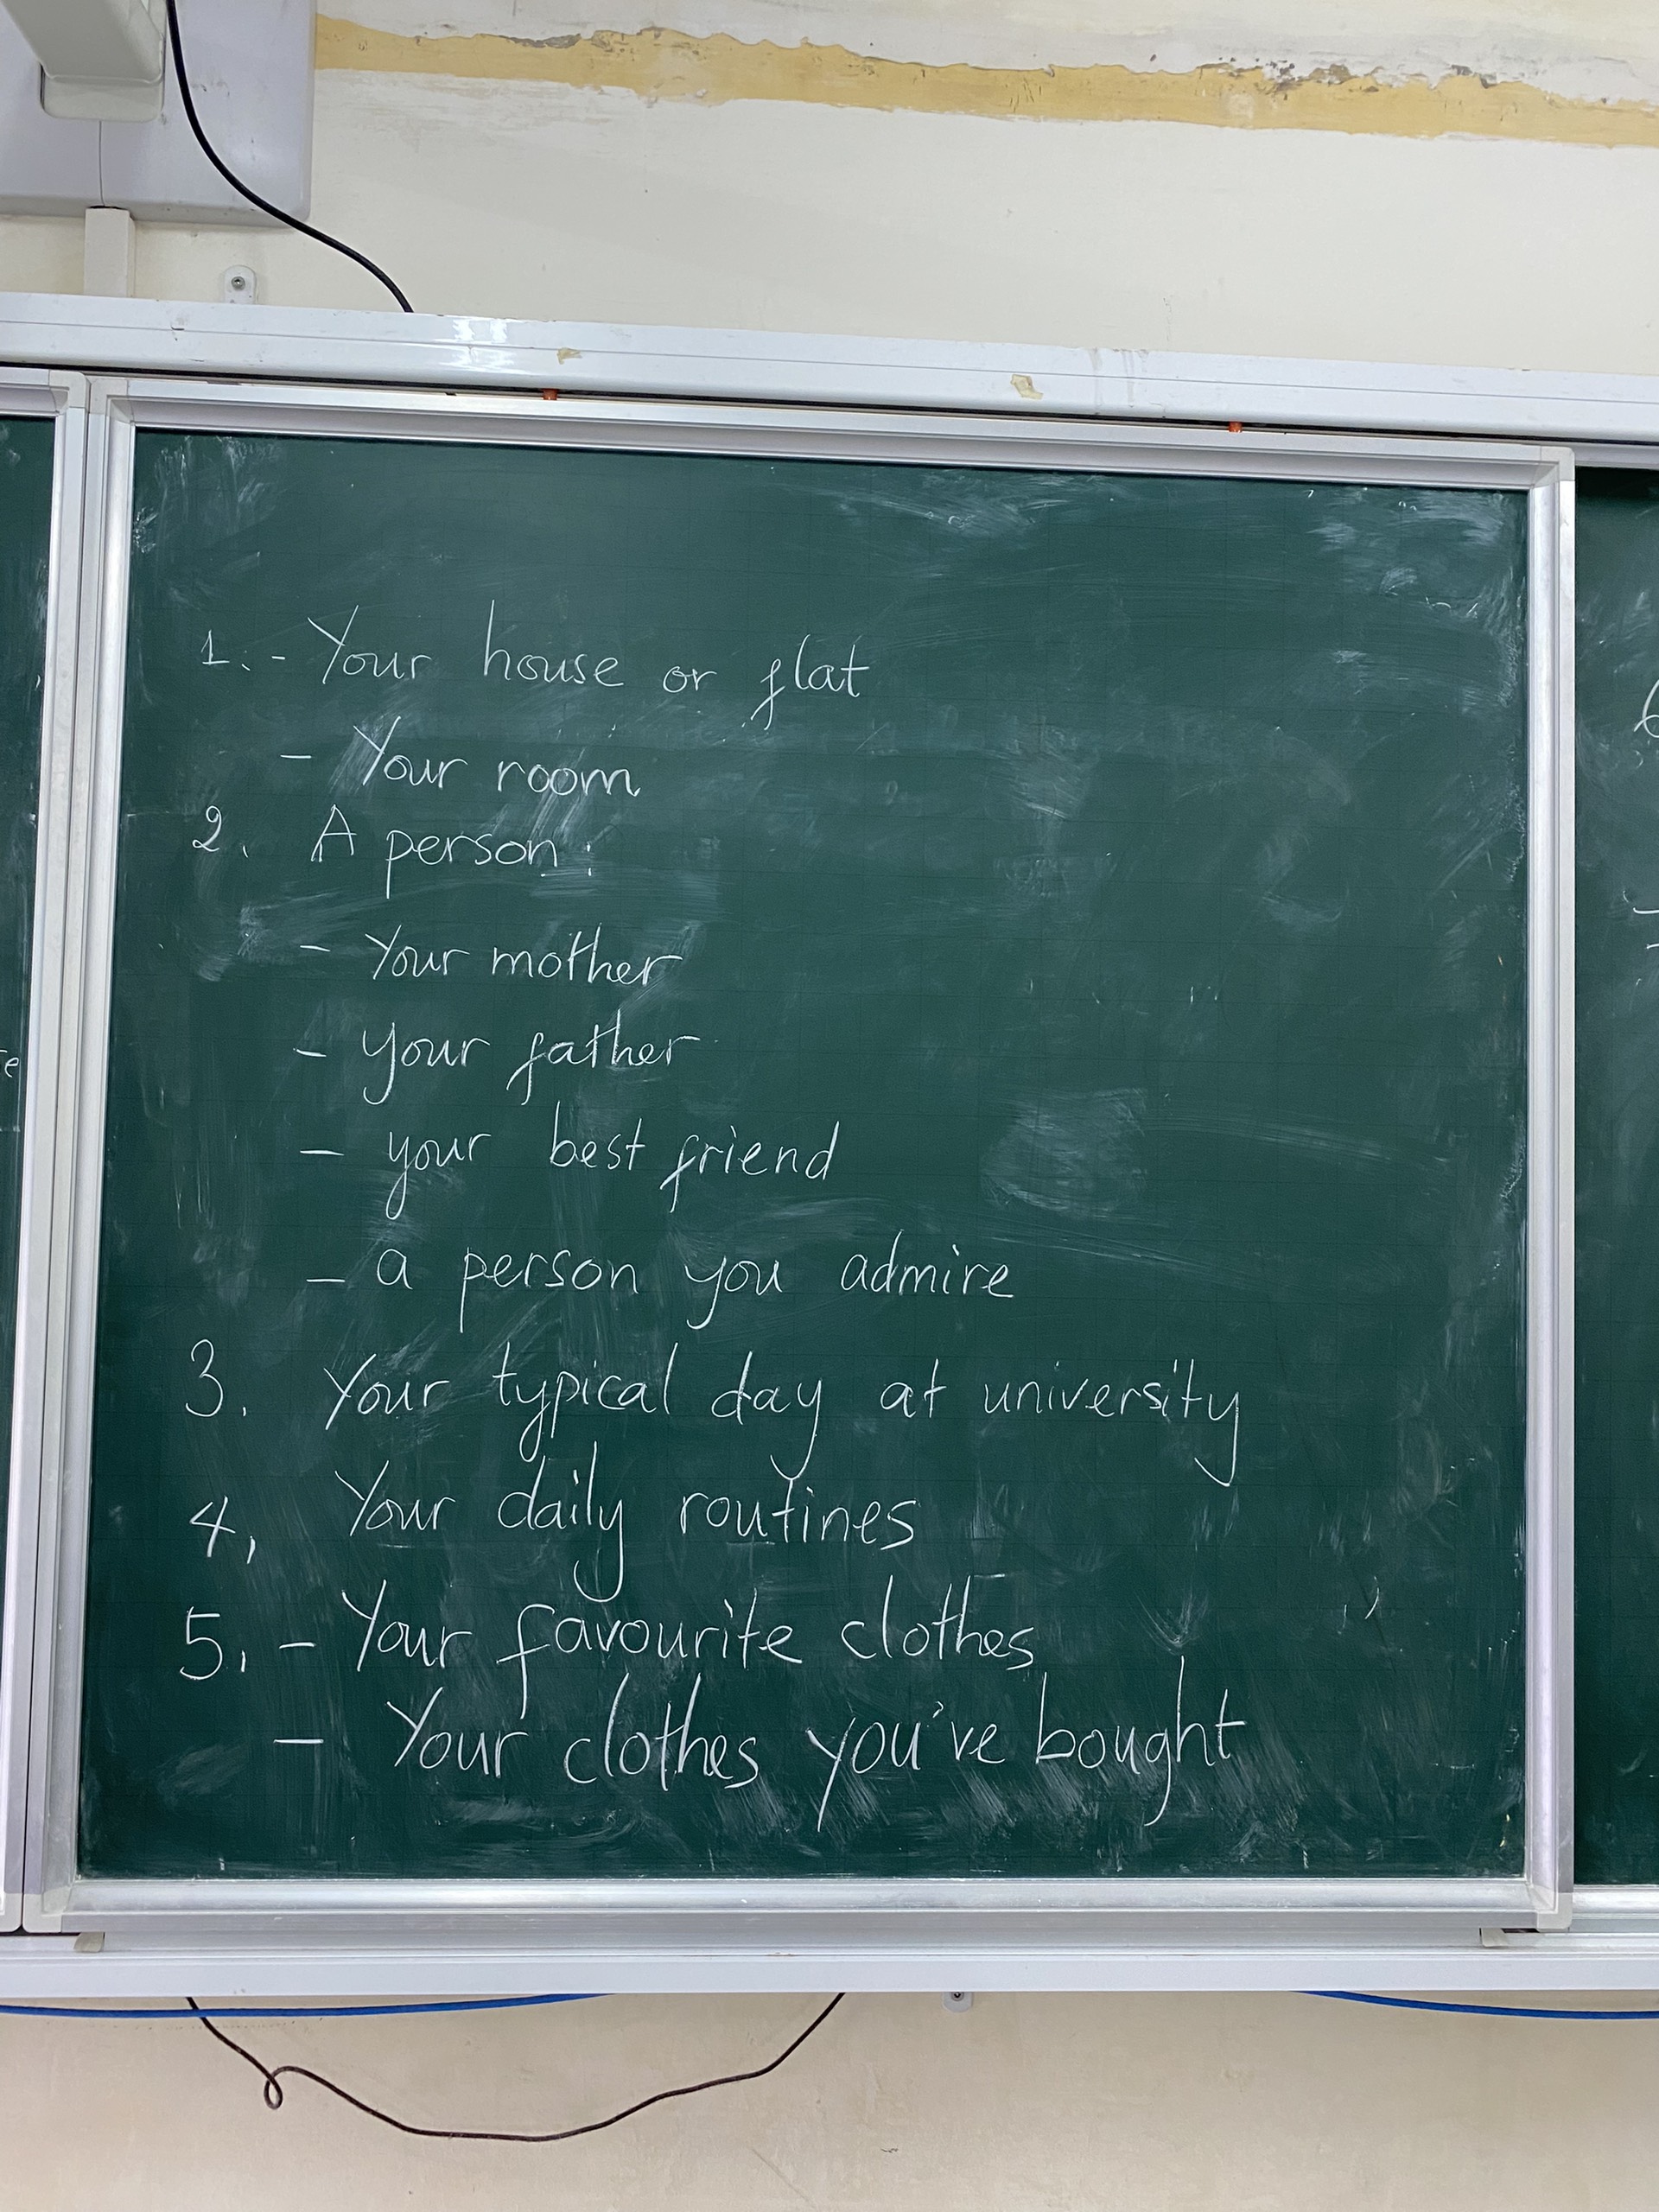 1. - Your house or flat
- Your room
2. A person:
- Your mother
- your father
- your best friend
- a person you admire
3. Your typical day at university
4, Your daily routines
5, - Your favourite clothes
- Your clothes you've bought